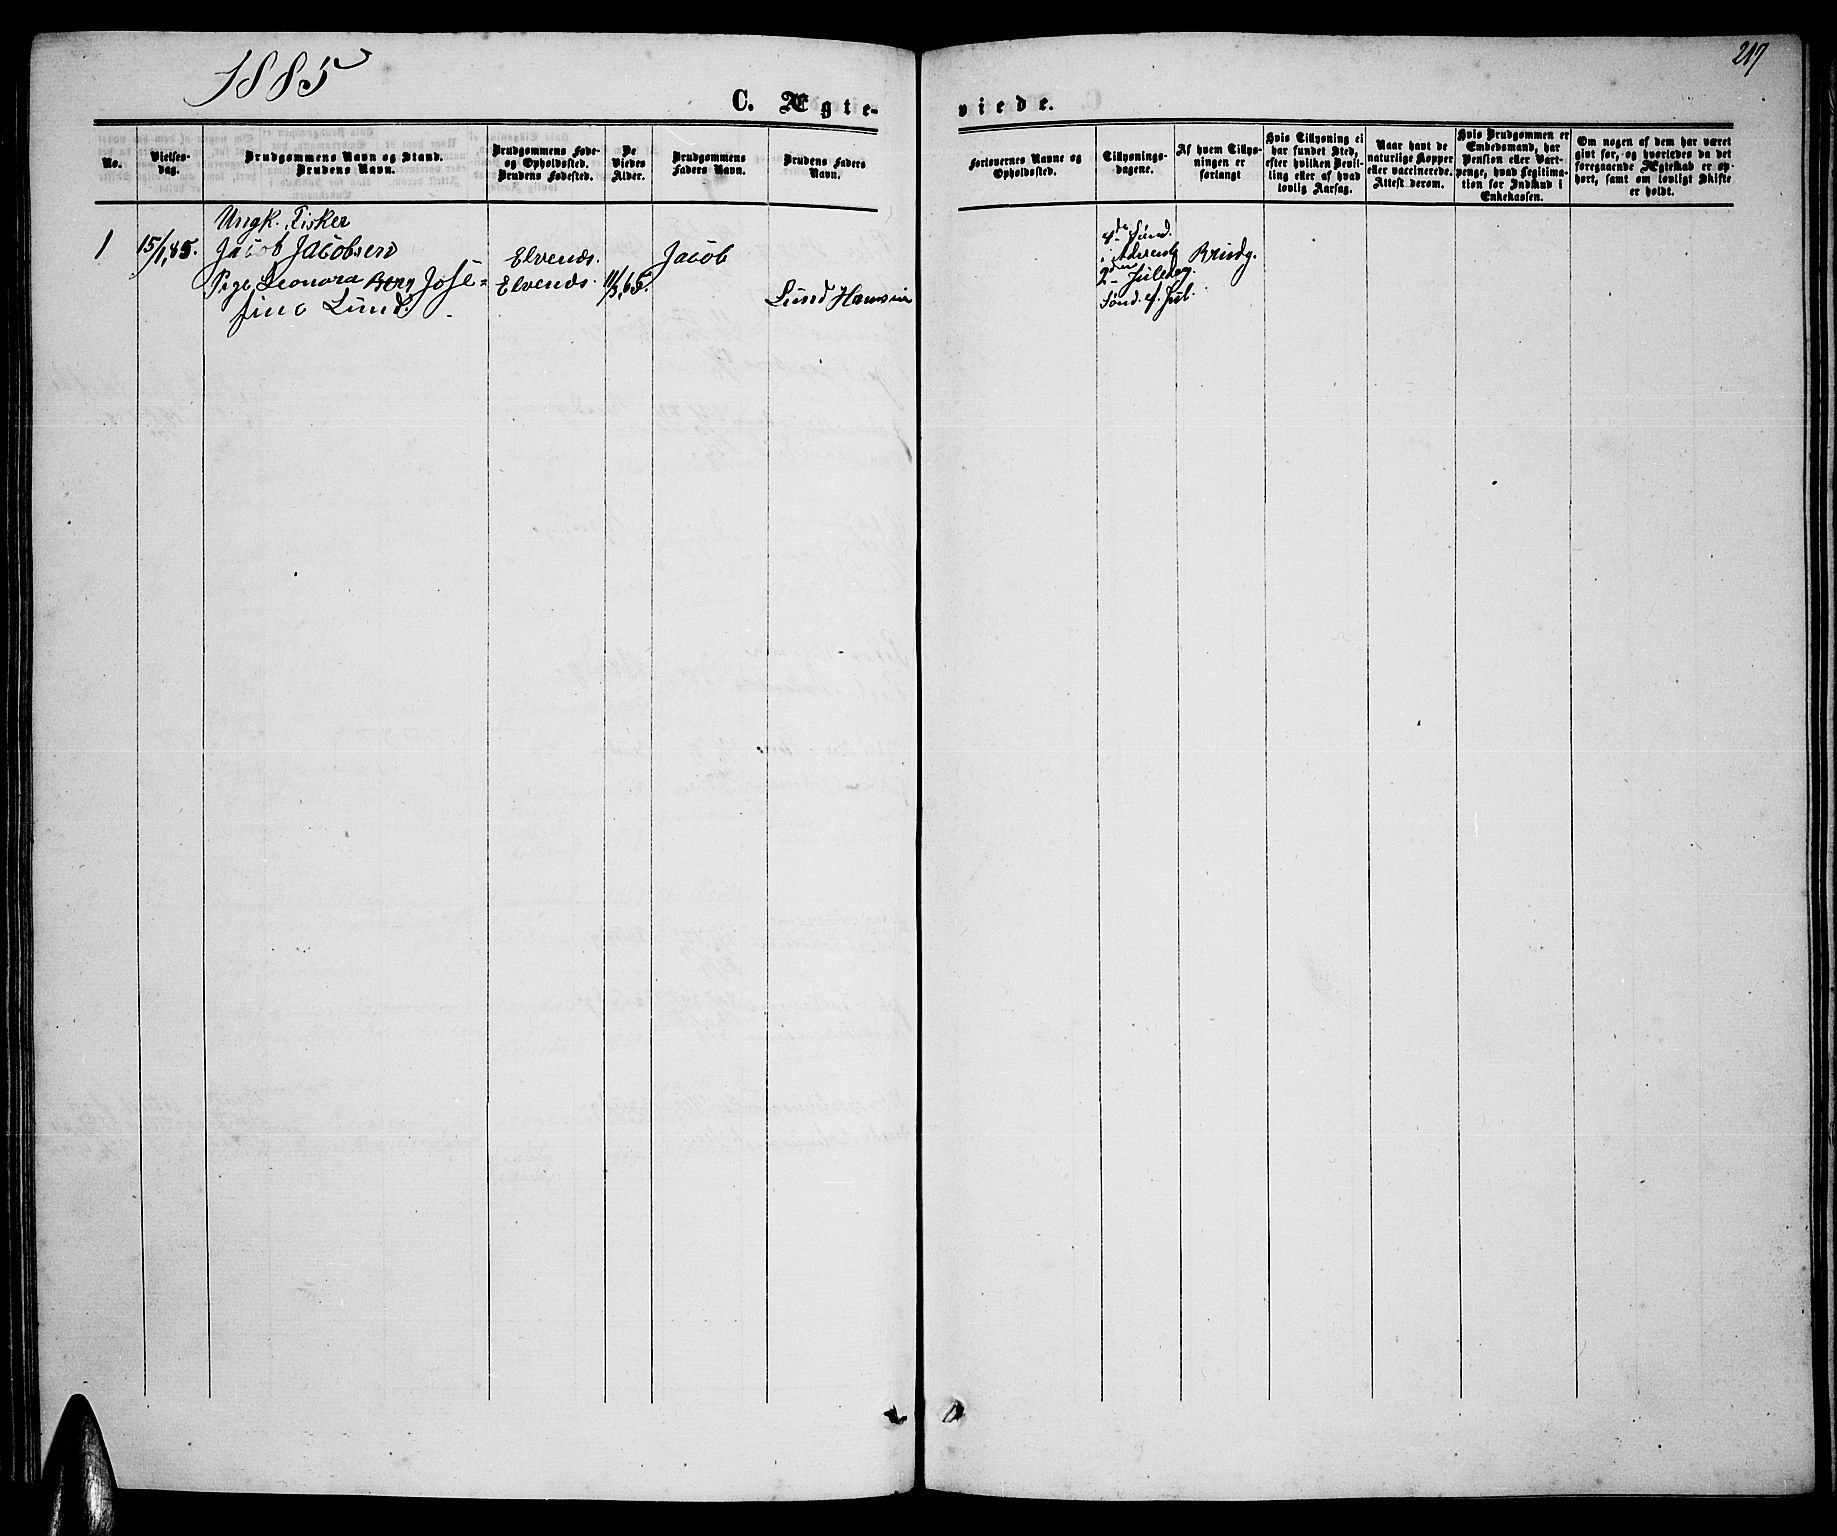 1885
217
C. Ægte-
viede.
No.
Vielses-
dag.
Brudgommens Navn og Stand.
Brudens Navn.
Brudgommens Føde-
og Opholdssted.
Brudens Fødested.
De
Viedes
Alder.
Brudgommens
Faders Navn.
Brudens Faders
Navn.
Forlovernes Navne og
Opholdssted.
Tillysnings-
dagene.
Af hvem Tillys-
ningen er
forlangt
Hvis Tillysning ei
har fundet Sted,
efter hvilken Bevil-
ling eller af hvad
lovlig Aarsag.
Naar havt de
naturlige Kopper
eller vaccinerede.
Attest derom.
Hvis Brudgommen er
Embedsmand, har
Pension eller Vart-
penge, hvad Legitima-
tion for Indskud i
Enkekassen.
Om nogen af dem har været
givt før, og hvorledes da det
foregaaende Ægteskab er op-
hørt, samt om lovligt Skifte
er holdt.
1
15/1,85.
Ungk. Fisker
Jacob Jacobsen
Pige Leonora Berg Jose=
fine Lund.
Elvends.
Elvends.
11/3,65.
Jacob
Lund Hansen
4de Sønd.
i Advent
2den Juledag.
Sønd. e/ Jul.
Brudg.